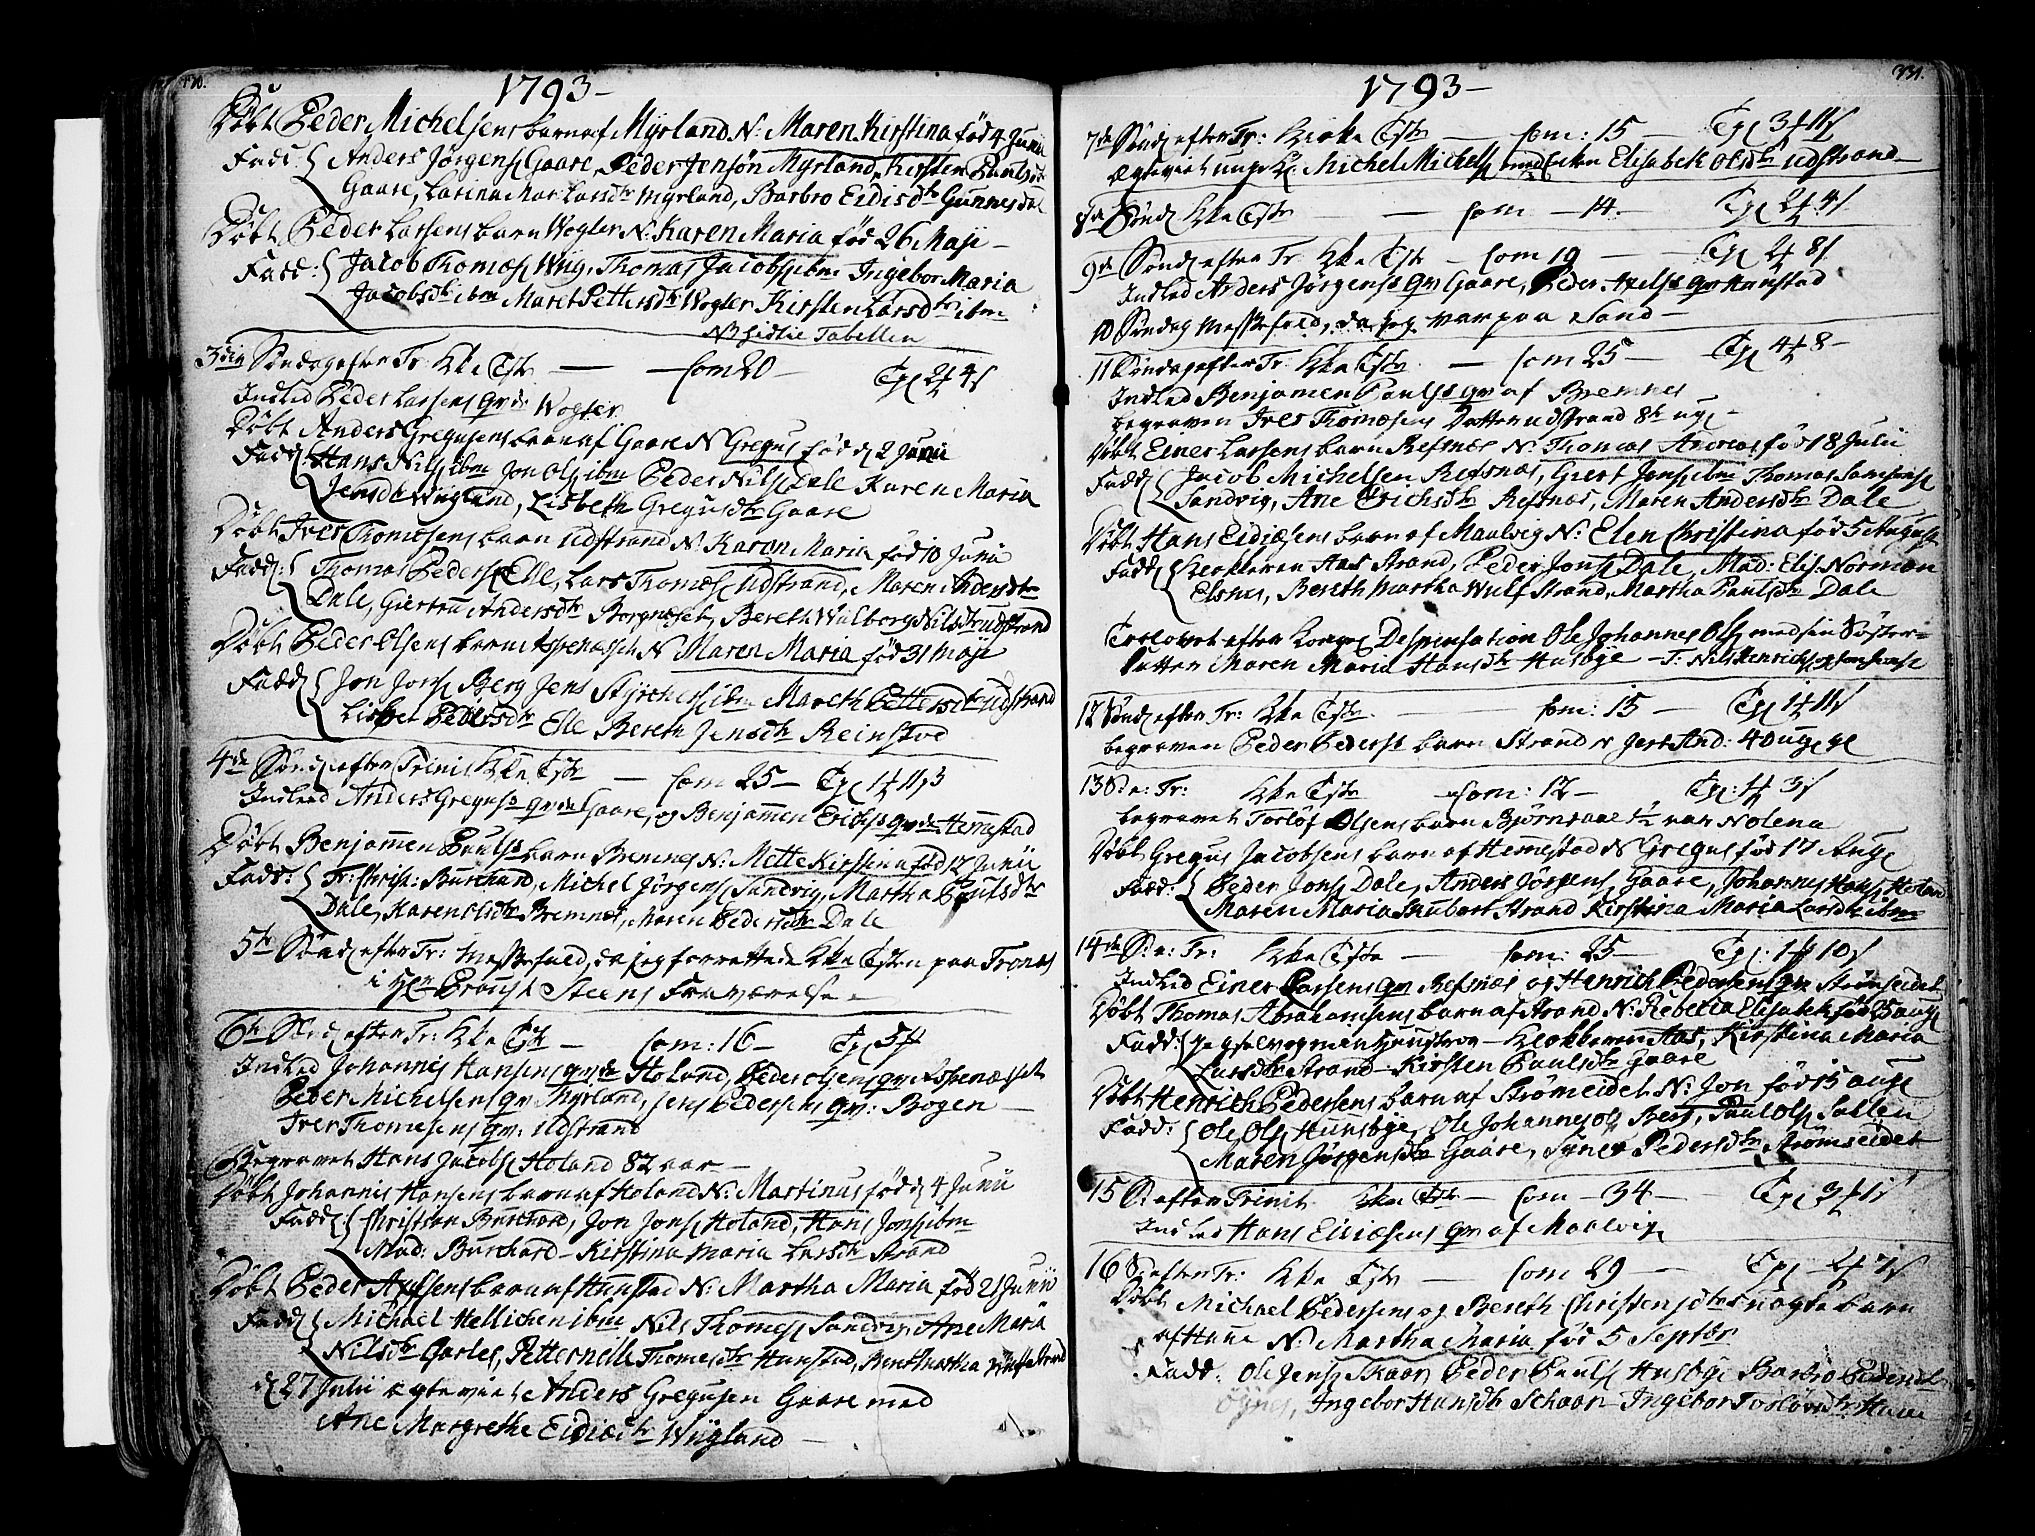 330.
1793 –
Döbt Peder Michelsens barn af Myrland N: Maren Kirstina föd 4 Junii
Fadd: Anders Jörgens Gaare, Peder Jensön Myrland, Kirsten Paulsdtr
Gaare, Larina Mar: Larsdtr Myrland, Barbro Eidisdtr Gunnesdal
Döbt Peder Larsens barn Wogler N: Karen Maria föd 26 Maji –
Fadd: Jacob Thomæs Wiig, Thomas Jacobs ibm Ingebor Maria
Jacobsdtr ibm Maret Pettersdtr Wogler Kirsten Larsdtr ibm
NB sidste Tabellen
3die Söndag efter Tr: Kke Tjste — Com 20 – Tgl 2 4
Indled Peder Larsens qvde Wogler
Döbt Anders Gregusens barn af Gaare N Gregus föd d 2 Junii
Fadd: Hans Nils ibm Jon Ols ibm Peder Nils Dale Karen Maria
Jensdtr Wiigland, Lisbeth Gregusdtr Gaare
Döbt Iver Thomæsens barn Udstrand N: Karen Maria föd 10 Junii
Fadd: Thomas Peders Elle, Lars Thomæs Udstrand, Maren Andersdtr
Dale, Giertru Andersdtr Borgneset, Bereth Wulborg Nilsdtr Udstrand
Döbt Peder Olsens barn N Maren Maria föd 31 Maji
Fadd: Jon Jons Berg Jens ibm Mareth Pettersdtr Udstrand
Lisbet Pedersdtr Elle Bereth Jensdtr Reinstad
4de Sönd efter Trinit Kke Tjste — Com 25 – Tgl 1 11 3
Indled Anders Gregus qvde Gaare, og Benjamen Erichs qvde Hemestad
Döbt Benjamen Pauls barn Bremnes N: Mette Kirstina föd 17 Junii
Fadd: Fr: Christ: Burchard, Michel Jörgens Sandvig, Martha Paulsdtr
Dale, Karen Olsdtr Bremnes, Maren Pedersdtr Dale
5te Sönd efter Tr: Messefald, da jeg forrettede Kke Tjsten paa Tronæs
i Hr Proust Steens Fraværelse –
6te Sönd efter Tr: Kke Tjst – Com: 16 – Tgl 5
Indled Johannis Hansens qvde Holand, Peder Olsens qv
Peder Michelsens qv Myrland, Jens Pedersens qv: Bogen
Iver Thomesens qv: Udstrand
Begravet Hans Jacobs Holand 82 aar –
Döbt Johannis Hansens barn af Holand N: Martinus föd d 4 Junii
Fadd: Christian Burchard, Jon Jons Holand, Hans Jons ibm
Mad: Burchard – Kirstina Maria Larsdtr Strand
Döbt Peder Axelsens barn af Hunstad N: Martha Maria föd 21 Junii
Fadd: Michael Hellichen ibm Nils Thomes Sandvig Ane Maria
Nilsdtr Garles, Petternille Thomesdtr Hunstad, Beret Martha Strand
d 27 Julii ægteviet Anders Gregusen Gaare med
Ane Margrethe Eidisdtr Wiigland –
331.
1793 –
7de Sönd efter Tr: Kirke Tjste – Com: 15 – Tgl 3 11
Ægteviet unge K. Michel Michels med enken Elisabek Olsdtr Udstrand –
8de Sönd Kke Tjste – – Com – 14 – Tgl 2 4
9de Sönd efter Tr: Kke Tjst – Com 19 – – Tgl 2 8
Indled Anders Jörgens qv Gaare, Peder Axels qv Hunstad
10 Söndag Messefald, da jeg var paa Sand –
11 Söndag efter Tr: Kke Tjste – Com 25 – Tgl 4 8 –
Indled Benjamen Pauls qv af Bremnes
begraven Ives Thomæsens Datter Udstrand 8te uge –
Döbt Einer Larsens barn Refsnæs N: Thomas Andreas föd 18 Julii
Fadd: Jacob Michelsen Refsnæs, Giert Jons ibm Thomas
Sandvig, Ane Erichsdtr Refsnæs, Maren Andersdtr Dale
Döbt Hans Eidisens barn af Maalvig N: Elen Christina föd 5 August
Fadd: Klokkeren Aas Strand, Peder Jons Dale, Mad: Elis: Norman
Elsnes, Bereth Martha Wulf Strand, Martha Paulsdtr Dale
Trolovet efter Konge Dispensation Ole Johannes Ols med sin Söster-
Datter Maren Maria Hansdtr Husbye – T: Nils Henrichs og
12 Sönd efter Tr: Kke Tjste – Com: 15 – Tgl 1 11
begraven Peder Peders barn Strand N Jens And: 4 uge gl
13 S: e: Tr: Kke Tjste – Com: 12 – Tgl: 4 3
begravet Torlöf Olsens barn Björnraae 1/2 aar N Olena
Döbt Gregus Jacobsens barn af Hemestad N Gregus föd 17 Aug
Fadd: Peder Jons Dale, Anders Jörgens Gaare, Johannes Hans Holan
Maren Maria Strand Kirstina Maria Larsdtr ibm
14de S: e: Tr: Kke Tjste – Com: 25 – Tgl: 1 10
Indled Einer Larsens qv Refsnæs og Henrich Pedersens qv Strömeidet
Döbt Thomas Abrahamsens barn af Strand N: Rebecca Elisabek föd 25 aug
Fadd: jeg selv og min hustroe – Klokkeren Aas, Kirstina Maria
Larsdtr Strand – Kirsten Paulsdtr Gaare
Döbt Henrich Pedersens barn af Strömeidet N: Jon föd 15 aug
Fadd: Ole Ols Husbye, Ole Johannes Ols Berg, Paul Ols Salten
Maren Jörgensdtr Gaare, Synev Pedersdtr Strömseidet
15 S: efter Trinit Kke Tjst – Com – 34 – Tgl 3 1
Indled Hans Eidisens qv af Maalvig
16 S: efter Tr: Kke Tjste – Com 29 – Tgl – 4 7
Döbt Michael Pedersens og Bereth Christensdtr uægte barn
af Haue N: Martha Maria föd 5 Septbr
Fadd: Ole Jens Skaar Peder Pauls Husbye Barbro Pedersdtr
Öynes, Ingebor Hansdtr Schaar Ingebor Torlövsdtr Haue